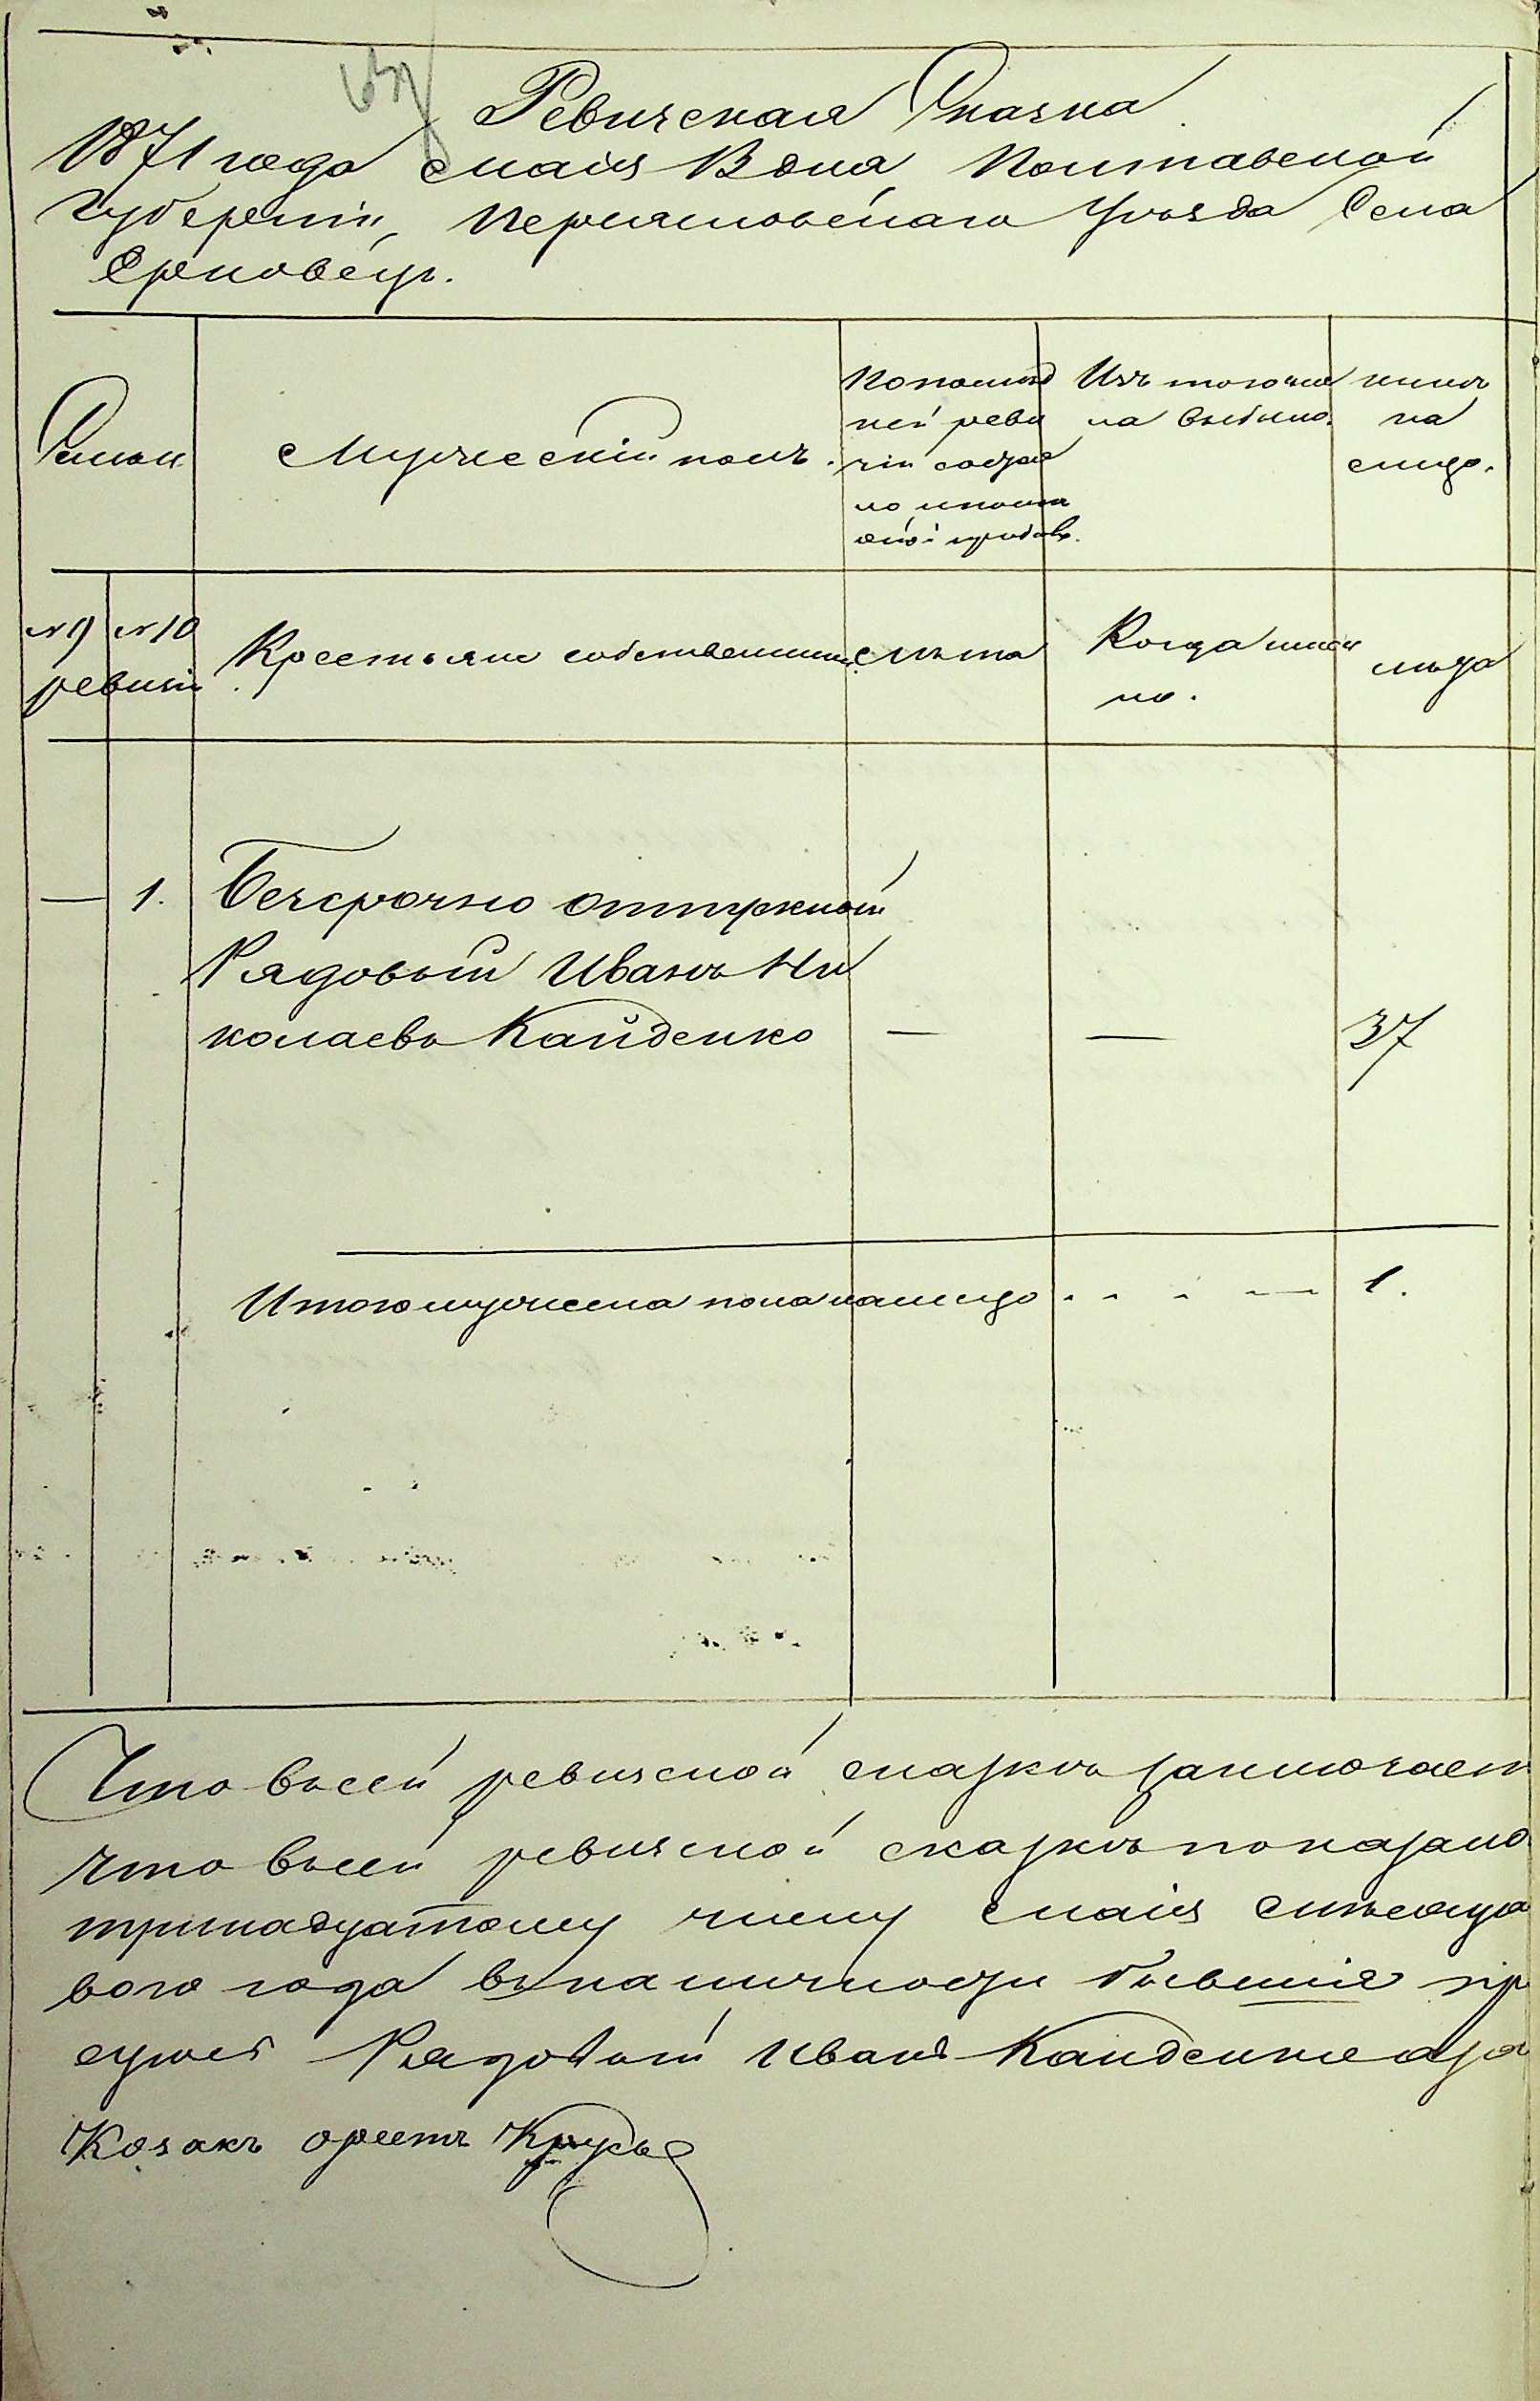 Ревизская Сказка
1871 года Маія 13 дня, Полтавской
Губерніи, Переяславскаго Уѣзда Села
Ерковецъ.
Семьи
Мужескій полъ.
По послѣд
ней реви
зіи состоя
ло и после
Изъ того чис
ла выбыло.
нынѣ
на
лицо.
№ 9 № 10
ревизіи
Крестьяне собственники
лѣта
Когда имен
но.
лѣта
— 1. Безсрочно отпускной
Рядовый Иванъ Ни
колаевъ Кайденко — — 37
Итого мужеска пола налицо . . . — 1.
Что въ сей ревизской сказкѣ заключает
что въ сей ревизской сказкѣ показано
тринадцатому числу Маія
вого года въ наличности бывшіе пр
Рядовый Иванъ Кайденко а за
Козакъ Орестъ